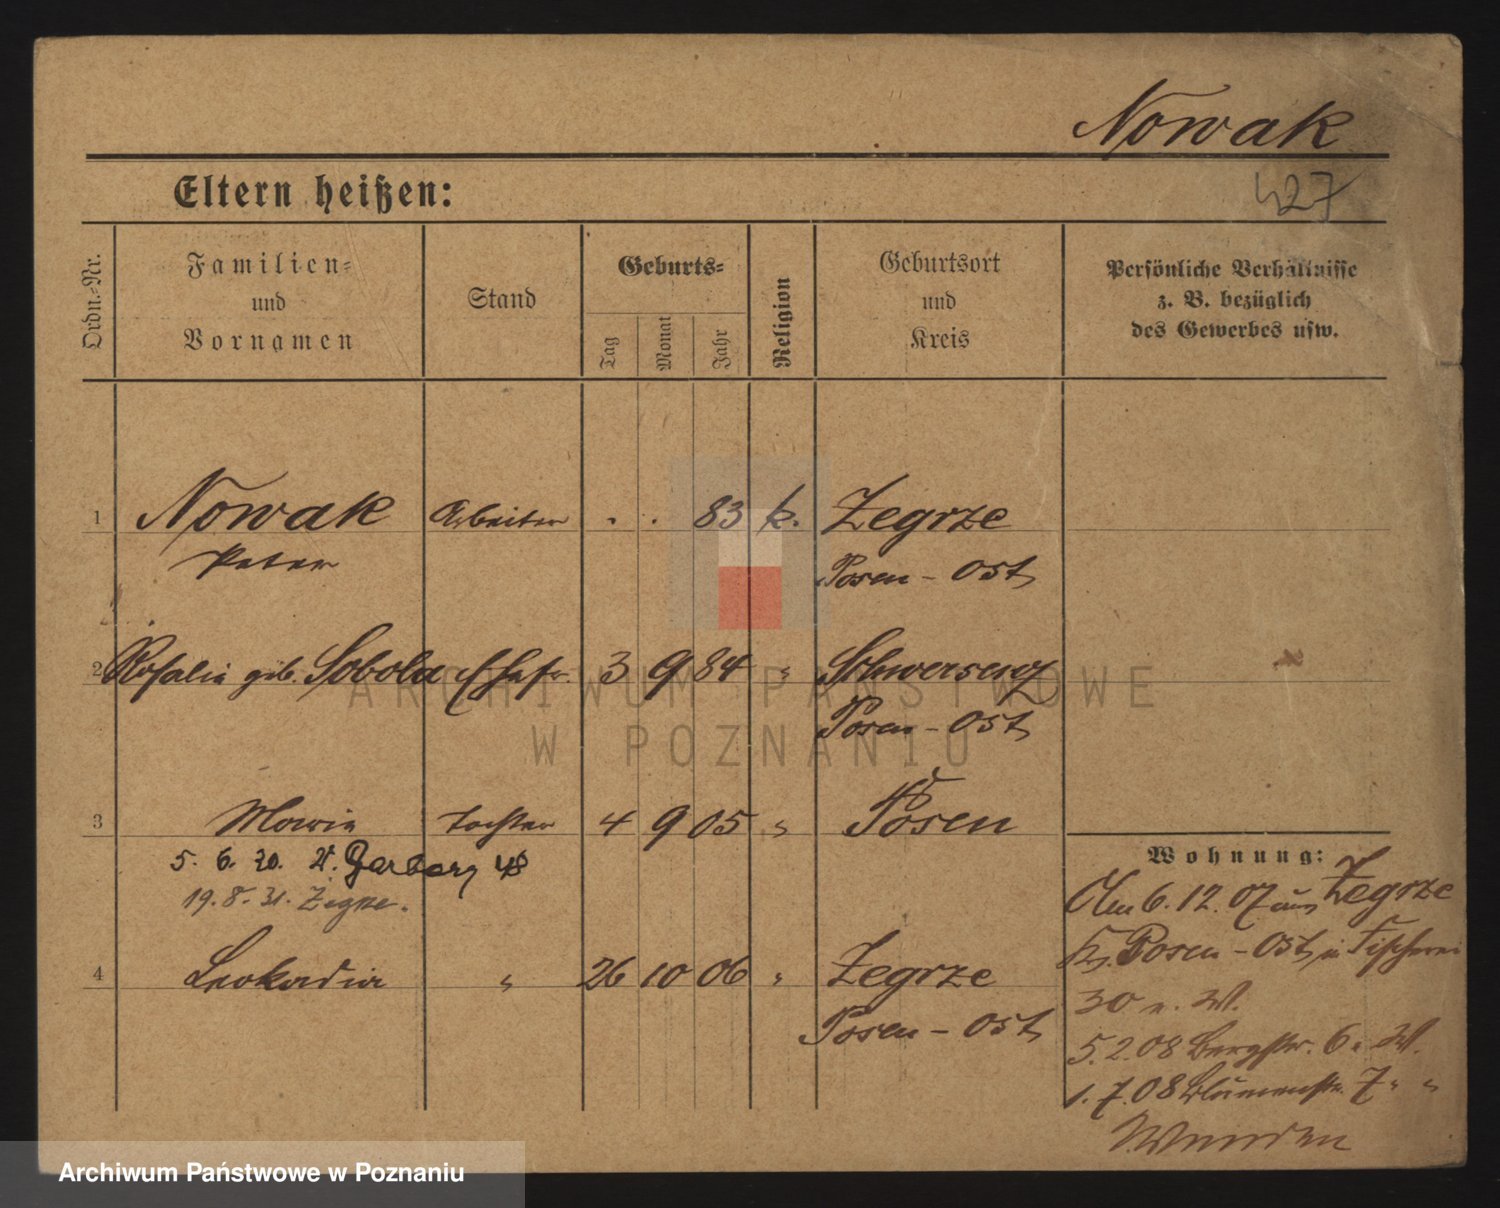 Nowak
Eltern heißen:
427
Ordn.-Nr.
Familien-
und
Vornamen
Stand
Geburts-
Tag
Monat
Jahr
Religion
Geburtsort
und
Kreis
Persönliche Verhältnisse
z. B. bezüglich
des Gewerbes usw.
1 Nowak Arbeiter . . 83 k. Zegrze
Peter Posen-Ost
2 Rosalie geb. Sobola Ehefr. 3 9 84 " Schwersenz
Posen-Ost
3 Marie Tochter 4 9 05 " Posen
5. 6. 20. Gerberg 48
19. 8. 31. Zegrze.
4 Leokadia " 26 10 06 " Zegrze
Posen-Ost
Wohnung:
Am 6.12.07 aus Zegrze
Kr. Posen-Ost, in Fischerei
30 n. W.
5.2.08 Bergstr. 6 " W.
1.7.08 Blumenstr. 7 " "
ARCHIWUM PAŃSTWOWE
W POZNANIU
Archiwum Państwowe w Poznaniu